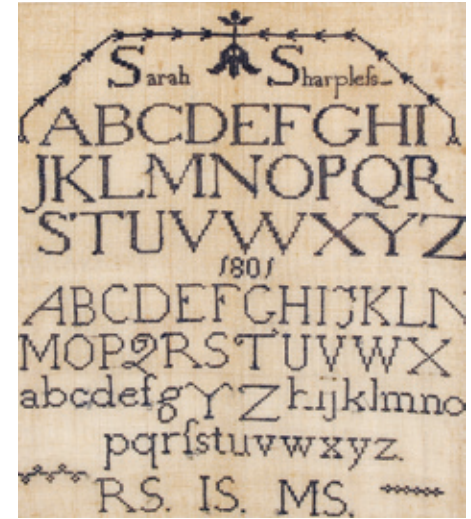 Sarah Sharpleſs
ABCDEFGHI
JKLMNOPQR
STUVWXYZ
1801
ABCDEFGHIJKLN
MOPQRSTUVWX
abcdefg YZ hijklmno
pqrſstuvwxyz.
RS. IS. MS.